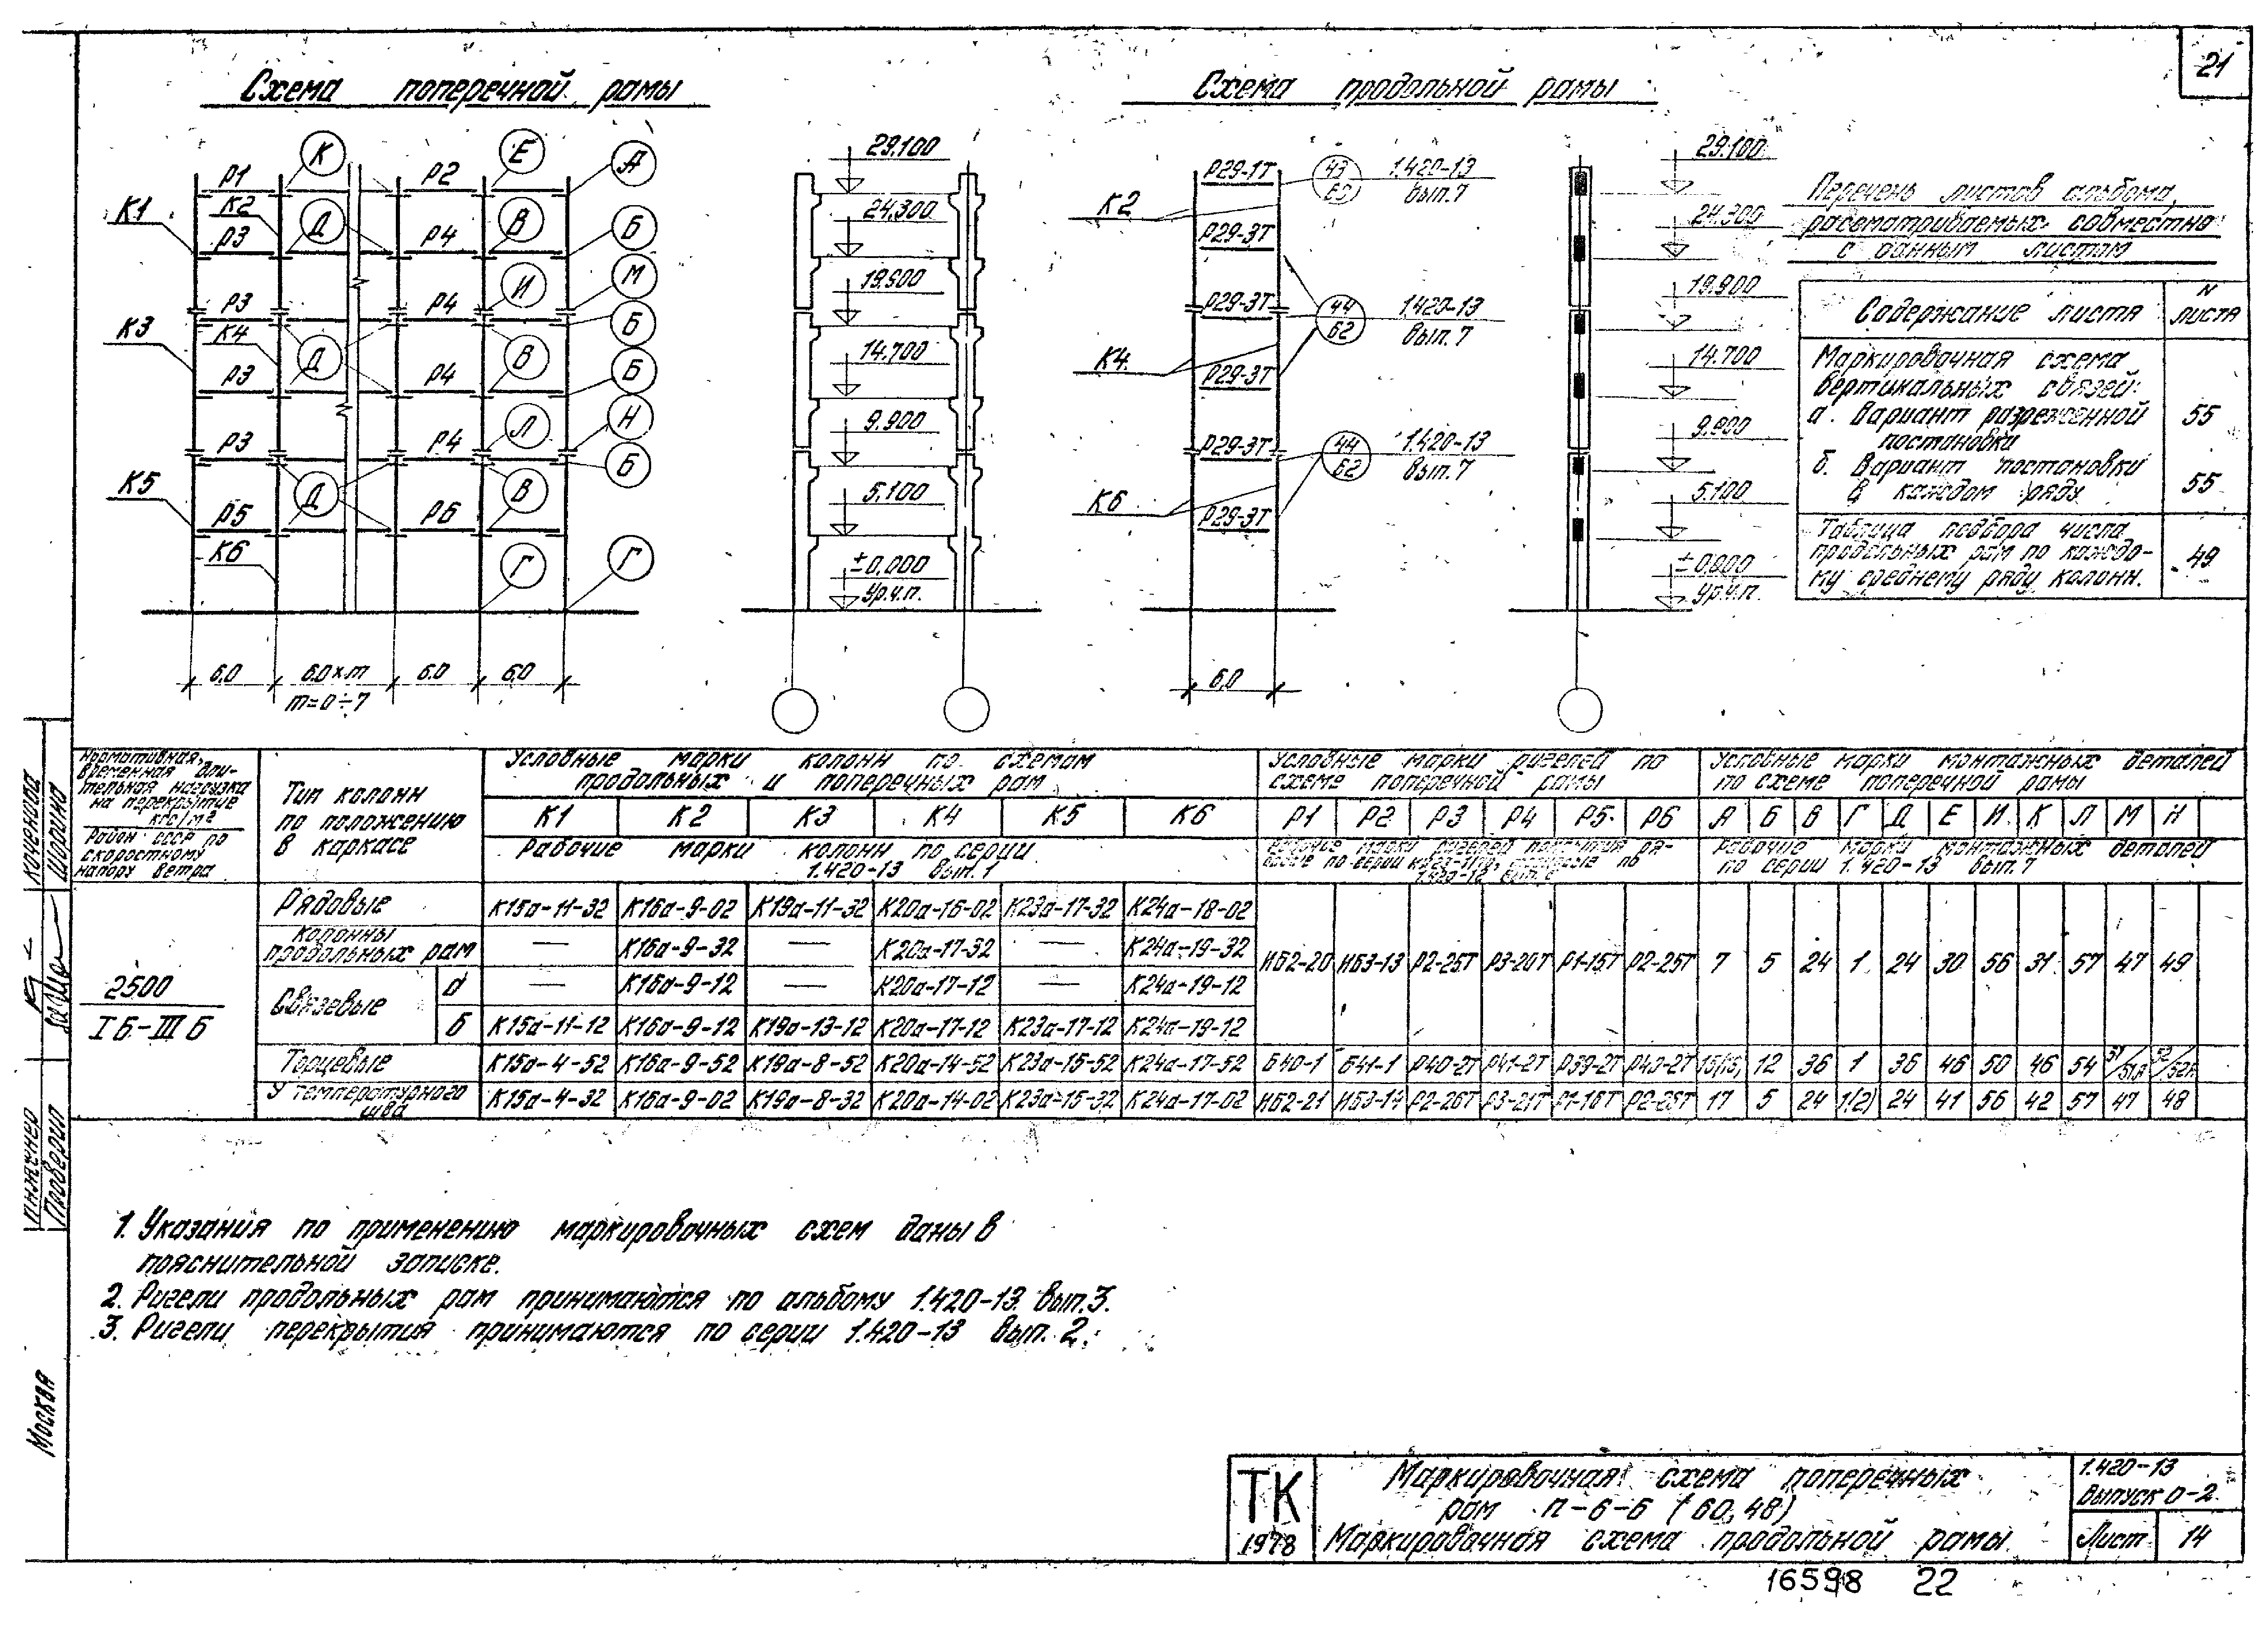 21
Схема поперечной рамы
Схема продольной рамы
К Е А
Р1 Р2
К1 К2 Д В Б
Р3 Р4
И М
Р3 Р4
К3 К4 Д В Б
Р3 Р4 Б
Л Н
Р3 Р4
К5 Д В Б
Р5 Р6
К6 Г Г
6.0 6.0×m 6.0 6.0
m=0÷7
29.100
24.300
19.500
14.700
9.900
5.100
±0.000
Ур.ч.п.
Р29-1Т 43 1.420-13
вып.7
К2
Р29-3Т
Р29-3Т 44 1.420-13
62 вып.7
К4
Р29-3Т
Р29-3Т 44 1.420-13
62 вып.7
К6
Р29-3Т
6,0
29.100
24.300
19.900
14.700
9.900
5.100
±0.000
Ур.ч.п.
Перечень листов альбома,
рассматриваемых совместно
с данным листом
Содержание листа
N листа
Маркировочная схема
вертикальных связей:
а. Вариант разреженной
постановки 55
б. Вариант постановки
в каждом ряду 55
Таблица подбора числа
продольных рам по каждо-
му среднему ряду колонн. 49
Нормативная,
временная дли-
тельная нагрузка
на перекрытие
кгс/м²
Район СССР по
скоростному
напору ветра
Тип колонн
по положению
в каркасе
Условные марки колонн по схемам
продольных и поперечных рам
К1 К2 К3 К4 К5 К6
Рабочие марки колонн по серии
1.420-13 вып.1
Условные марки ригелей по
схеме поперечной рамы
Р1 Р2 Р3 Р4 Р5 Р6
Условные марки монтажных деталей
по схеме поперечной рамы
А Б В Г Д Е И К Л М Н
Рабочие марки монтажных деталей
по серии 1.420-13 вып.7
2500
IБ-IIIБ
Рядовые К15а-11-32 К16а-9-02 К19а-11-32 К20а-16-02 К23а-17-32 К24а-18-02
Колонны
продольных рам — К16а-9-32 — К20а-17-32 — К24а-19-32
ИБ2-20 ИБ3-13 Р2-25Т Р3-20Т Р1-15Т Р2-25Т 7 5 24 1 24 30 56 31 57 47 49
Связевые а — К16а-9-12 — К20а-17-12 — К24а-19-12
Б К15а-11-12 К16а-9-12 К19а-13-12 К20а-17-12 К23а-17-12 К24а-19-12
Торцевые К15а-4-52 К16а-9-52 К19а-8-52 К20а-14-52 К23а-15-52 К24а-17-52 Б40-1 Б41-1 Р40-2Т Р41-2Т Р39-2Т Р40-2Т 12 36 1 36 46 50 46 54
У температурного
шва К15а-4-32 К16а-9-02 К19а-8-32 К20а-14-02 К23а-15-32 К24а-17-02 ИБ2-21 ИБ3-14 Р2-26Т Р3-21Т Р1-16Т Р2-26Т 17 5 24 1(2) 24 41 56 42 57 47 48
1. Указания по применению маркировочных схем даны в
пояснительной записке.
2. Ригели продольных рам принимаются по альбому 1.420-13 вып.3.
3. Ригели перекрытия принимаются по серии 1.420-13 вып. 2.
Коченова
Шорина
Инженер
Проверил
Москва
ТК
1978
Маркировочная схема поперечных
рам п-6-6 (60,48)
Маркировочная схема продольной рамы
1.420-13
Выпуск 0-2
Лист 14
16598 22